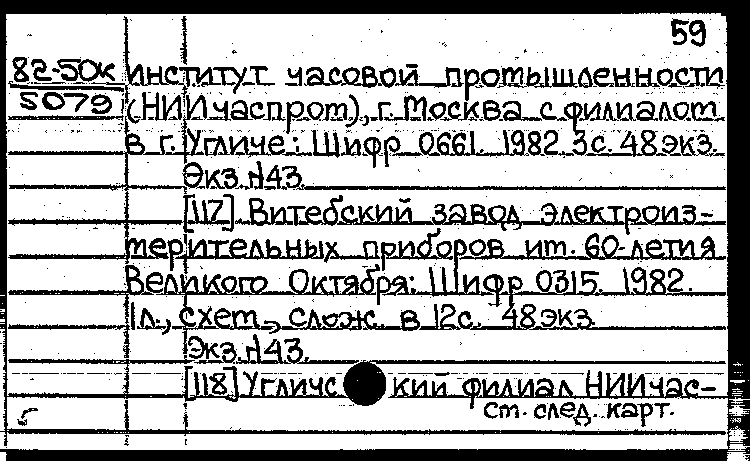 59
82-50к институт часовой промышленности
5079 (НИИчаспром), г. Москва с филиалом
в г. Угличе: Шифр 0661. 1982. 3с. 48экз.
Экз.№43.
[117]. Витебский завод электроиз-
мерительных приборов им. 60-летия
Великого Октября: Шифр 0315. 1982.
1л., схем., слож. в 12с. 48экз.
Экз.№43.
[118] Угличский филиал НИИчас-
см. след. карт.